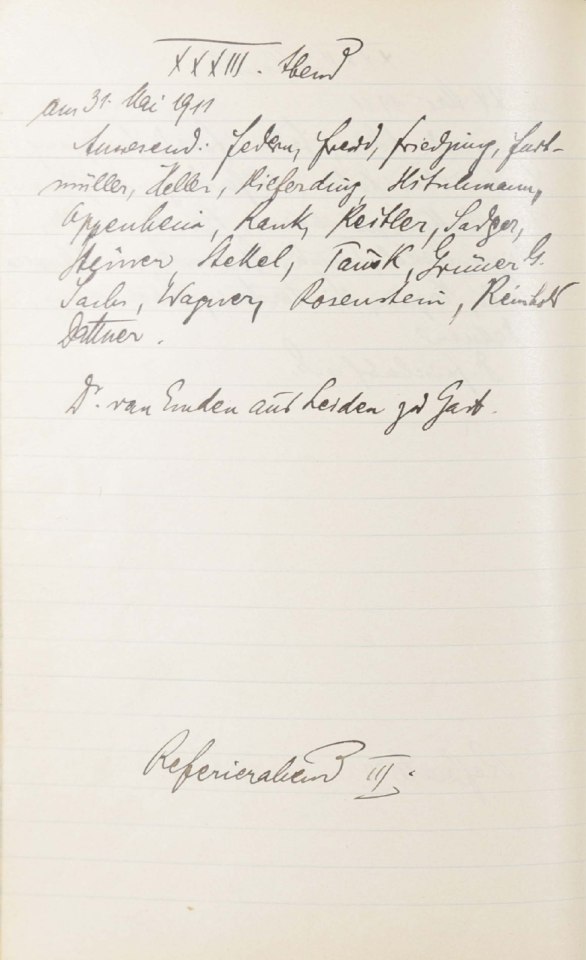 XXXIII. Abend
am 31. Mai 1911
Anwesend: Federn, Freud, Friedjung, Furt-
müller, Heller, Hitschmann,
Oppenheim, Rank, Reitler, Sadger,
Steiner, Stekel, Tausk, Grüner G.
Sachs, Wagner, Rosenstein, Reinhold
Dattner.
Dr. van Emden aus Leiden zu Gast.
Referierabend III.